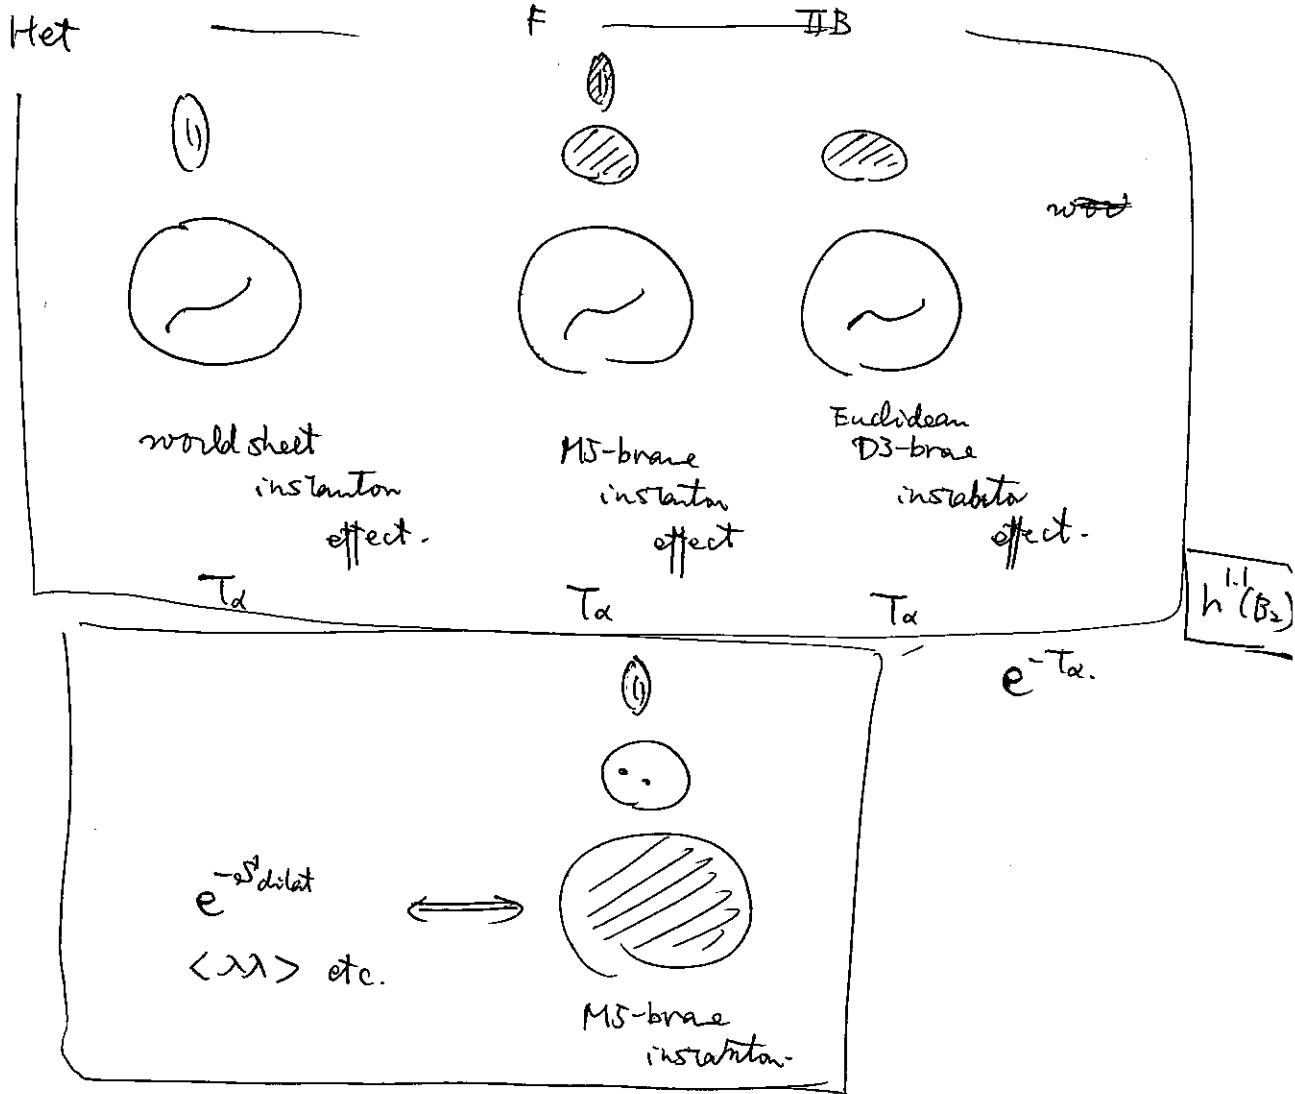 Het F IIB
world sheet
instanton
effect.
M5-brane
instanton
effect
Euclidean
D3-brane
effect.
Tα Tα Tα
h^{1.1}(B₂)
e^{-Tα}.
e^{-S_{dilat}}
<λλ> etc.
M5-brane